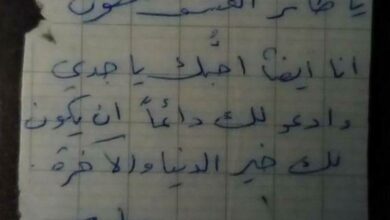 يا طائر
انا ايضاً احبَّك يا جدي
وادعو لك دائماً ان يكون
لك خير الدنيا والآخرة.